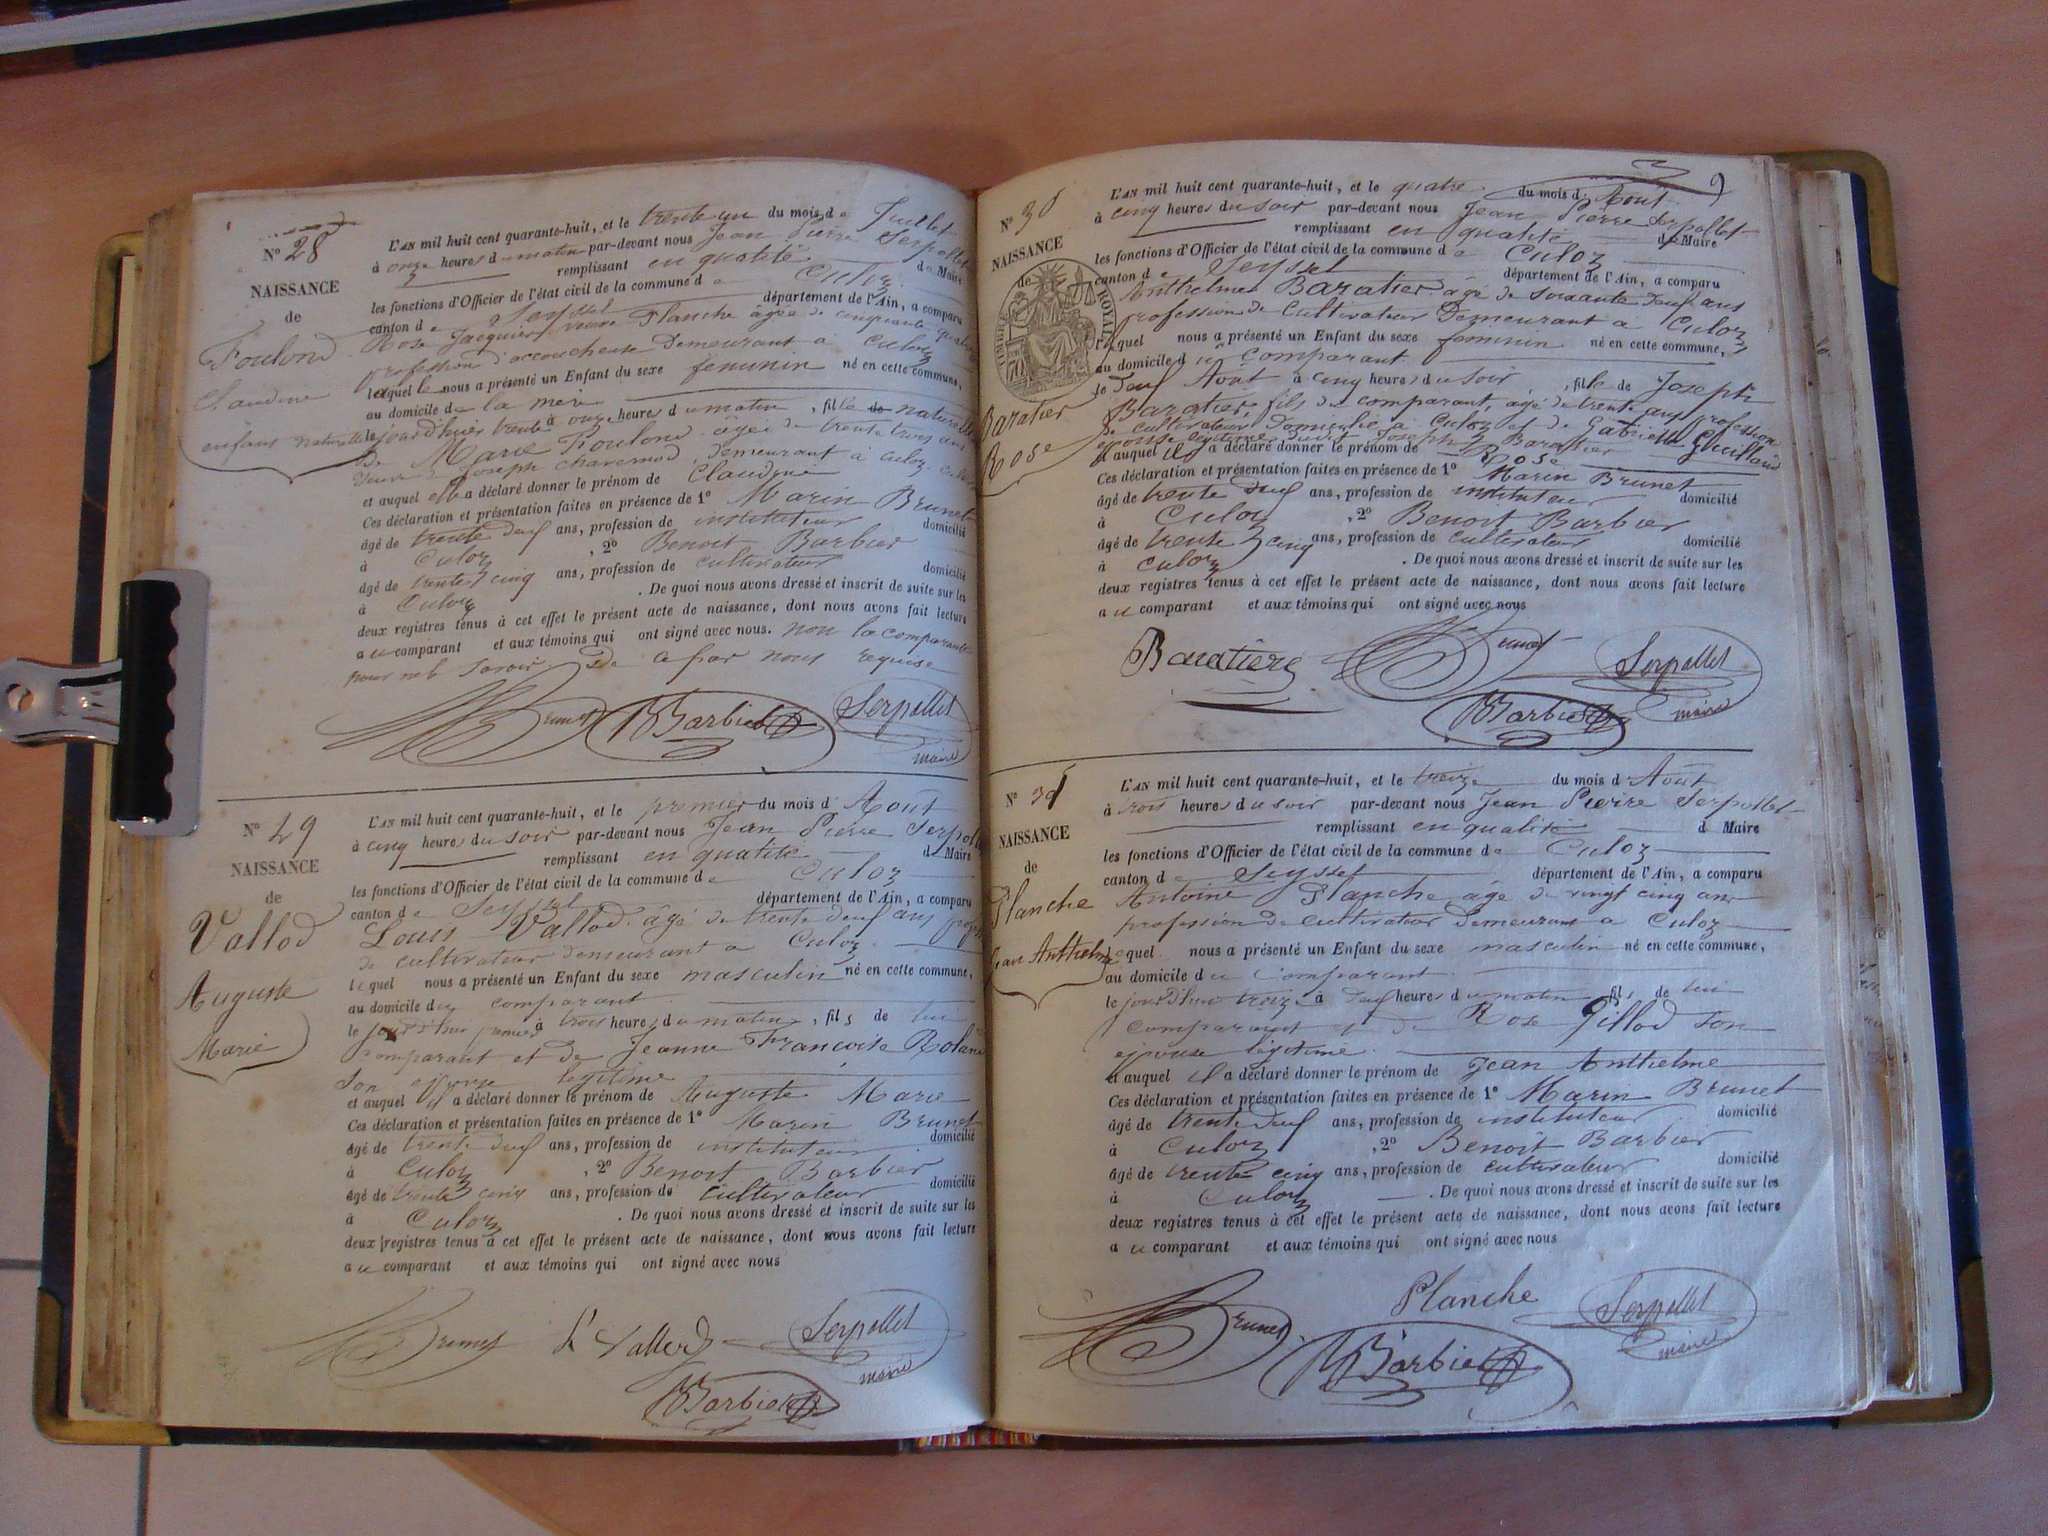 N° 28
NAISSANCE
de
Foulond
Claudine
enfant naturelle
L'AN mil huit cent quarante-huit, et le trente un du mois de Juillet
à onze heures du matin par-devant nous Jean Pierre Serpollet
remplissant en qualité de Maire
les fonctions d'Officier de l'état civil de la commune de Culoz
canton de Seyssel département de l'Ain, a comparu
Rose Jacquier veuve Planche âgée de cinquante quatre
profession d'accoucheuse Demeurant à Culoz
laquelle nous a présenté un Enfant du sexe feminin né en cette commune,
au domicile de la mere
le jourd'hier trente à onze heures du matin, fille de naturelle
De Marie Foulond âgée de trente trois ans
Joseph demeurant à Culoz
et auquel elle a déclaré donner le prénom de Claudine
Ces déclaration et présentation faites en présence de 1° Marin Brunet
âgé de trente deuf ans, profession de instituteur domicilié
à Culoz, 2° Benoit Barbier
âgé de trente cinq ans, profession de cultivateur domicilié
à Culoz. De quoi nous avons dressé et inscrit de suite sur les
deux registres tenus à cet effet le présent acte de naissance, dont nous avons fait lecture
au comparant et aux témoins qui ont signé avec nous. non la comparante
pour ne le savoir De ce par nous requise
Brunet Barbier Serpollet
maire
N° 29
NAISSANCE
de
Vallod
Auguste
Marie
L'AN mil huit cent quarante-huit, et le premier du mois d'Aout
à cinq heures du soir par-devant nous Jean Pierre Serpollet
remplissant en qualité de Maire
les fonctions d'Officier de l'état civil de la commune de Culoz
canton de Seyssel département de l'Ain, a comparu
Louis Vallod âgé de trente deuf ans prof
de cultivateur demeurant a Culoz
lequel nous a présenté un Enfant du sexe masculin né en cette commune,
au domicile du comparant
le jourd'hui premier à trois heures du matin, fils de lui
comparant et de Jeanne Francoise Roland
son epouse legitime
et auquel il a déclaré donner le prénom de Auguste Marie
Ces déclaration et présentation faites en présence de 1° Marin Brunet
âgé de trente deuf ans, profession de instituteur domicilié
à Culoz, 2° Benoit Barbier
âgé de trente cinq ans, profession de cultivateur domicilié
à Culoz. De quoi nous avons dressé et inscrit de suite sur les
deux registres tenus à cet effet le présent acte de naissance, dont nous avons fait lecture
au comparant et aux témoins qui ont signé avec nous
Brunet L Vallod Serpollet
maire
Barbier
9
N° 30
NAISSANCE
de
TIMBRE ROYAL
70
Baratier
Rose
L'AN mil huit cent quarante-huit, et le quatre du mois d'Aout
à cinq heures du soir par-devant nous Jean Pierre Serpollet
remplissant en qualité de Maire
les fonctions d'Officier de l'état civil de la commune de Culoz
canton de Seyssel département de l'Ain, a comparu
Anthelme Baratier âgé de soixante deuf ans
profession de Cultivateur Demeurant a Culoz
lequel nous a présenté un Enfant du sexe feminin né en cette commune,
au domicile du comparant
le deuf Aout à cinq heures du soir, fille de Joseph
Baratier, fils du comparant, agé de trente ans profession
de cultivateur Domicilié a Culoz et de Gabrielle Guilland
epouse legitime dudit Joseph Baratier
et auquel il a déclaré donner le prénom de Rose
Ces déclaration et présentation faites en présence de 1° Marin Brunet
âgé de trente deuf ans, profession de instituteur domicilié
à Culoz, 2° Benoit Barbier
âgé de trente cinq ans, profession de cultivateur domicilié
à Culoz. De quoi nous avons dressé et inscrit de suite sur les
deux registres tenus à cet effet le présent acte de naissance, dont nous avons fait lecture
au comparant et aux témoins qui ont signé avec nous
Baratier Brunet Serpollet
maire
Barbier
N° 31
NAISSANCE
de
Planche
Jean Anthelme
L'AN mil huit cent quarante-huit, et le treize du mois d'Aout
à trois heures du soir par-devant nous Jean Pierre Serpollet
remplissant en qualité d Maire
les fonctions d'Officier de l'état civil de la commune de Culoz
canton de Seyssel département de l'Ain, a comparu
Antoine Planche âgé de vingt cinq ans
profession de cultivateur Demeurant a Culoz
lequel nous a présenté un Enfant du sexe masculin né en cette commune,
au domicile du Comparant
le jourd'hui treize à deuf heures du matin fils de lui
comparant et de Rose Gillod son
epouse légitime
et auquel il a déclaré donner le prénom de Jean Anthelme
Ces déclaration et présentation faites en présence de 1° Marin Brunet
âgé de trente deuf ans, profession de instituteur domicilié
à Culoz, 2° Benoit Barbier
âgé de trente cinq ans, profession de cultivateur domicilié
à Culoz. De quoi nous avons dressé et inscrit de suite sur les
deux registres tenus à cet effet le présent acte de naissance, dont nous avons fait lecture
au comparant et aux témoins qui ont signé avec nous
Brunet Planche Serpollet
maire
Barbier